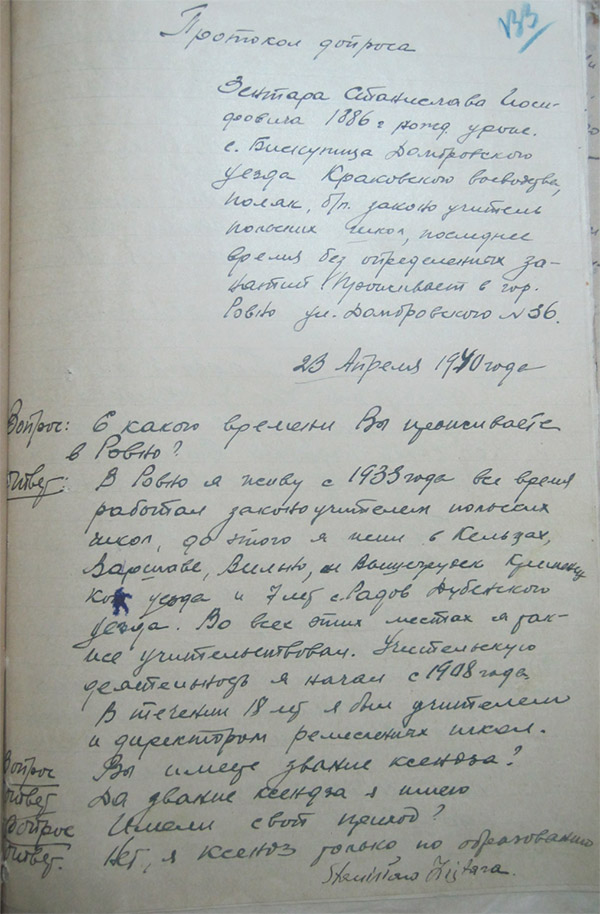 133
Протокол допроса
Зентара Станислава Иоси-
фовича 1886 г рожд урож.
с. Бискупица Домбровского
уезда Краковского воеводства,
поляк, б/п. законоучитель
польских школ, последнее
время без определенных за-
нятий проживает в гор.
Ровно ул. Домбровского №36.
23 Апреля 1940 года
Вопрос: С какого времени Вы проживаете
в Ровно?
Ответ: В Ровно я живу с 1933 года все время
работал законоучителем польских
школ, до этого я жил в Кельцах,
Варшаве, Вильно, м Вышгрудек Кременец
кого уезда и 7 лет с. Радов Дубенского
уезда. Во всех этих местах я так-
же учительствовал. Учительскую
деятельность я начал с 1908 года
В течении 18 лет я был учителем
и директором ремесленых школ.
Вопрос Вы имеете звание ксендза?
Ответ Да звание ксендза я имею
Вопрос Имели свой приход?
Ответ. Нет, я ксендз только по образованию
Stanisław